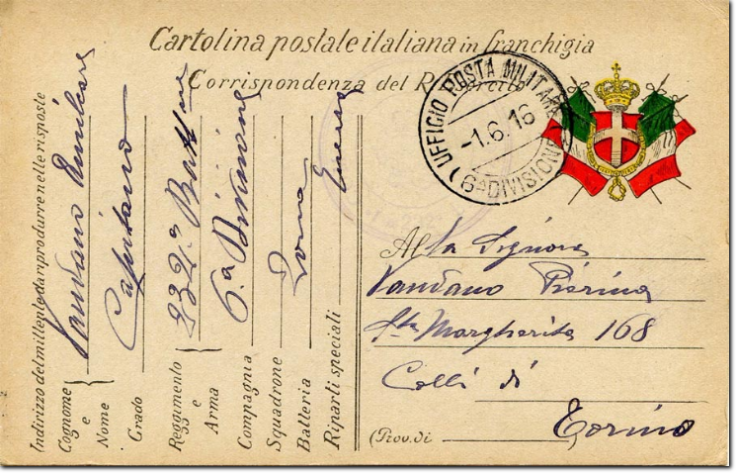 Cartolina postale italiana in franchigia
Corrispondenza del R. Esercito
UFFICIO POSTA MILITARE
-1.6.16
(6ª DIVISIONE)
Alla Signora
Vandano Pierina
Sta Margherita 168
Colli di
Torino
(Prov. di
Indirizzo del mittente da riprodurre nelle risposte
Cognome e Nome Vandano Amilcare
Grado Capitano
Reggimento e Arma 232° Battne
Compagnia 6ª Divisione
Squadrone
Batteria Zona
Riparti speciali Guerra